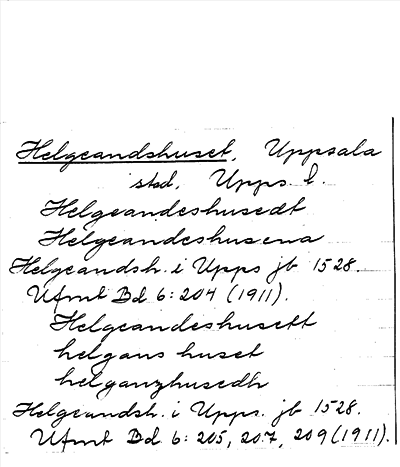 Helgeandshuset, Uppsala
stad, Upps. l.
Helgeandeshusedt
Helgeandeshusena
Helgeandsh. i Upps jb 1528.
Ufmt Bd 6: 204 (1911).
Helgeandeshusett
helgans huset
helganzhusedh
Helgeandsh. i Upps. jb 1528.
Ufmt Bd 6: 205, 207, 209 (1911).